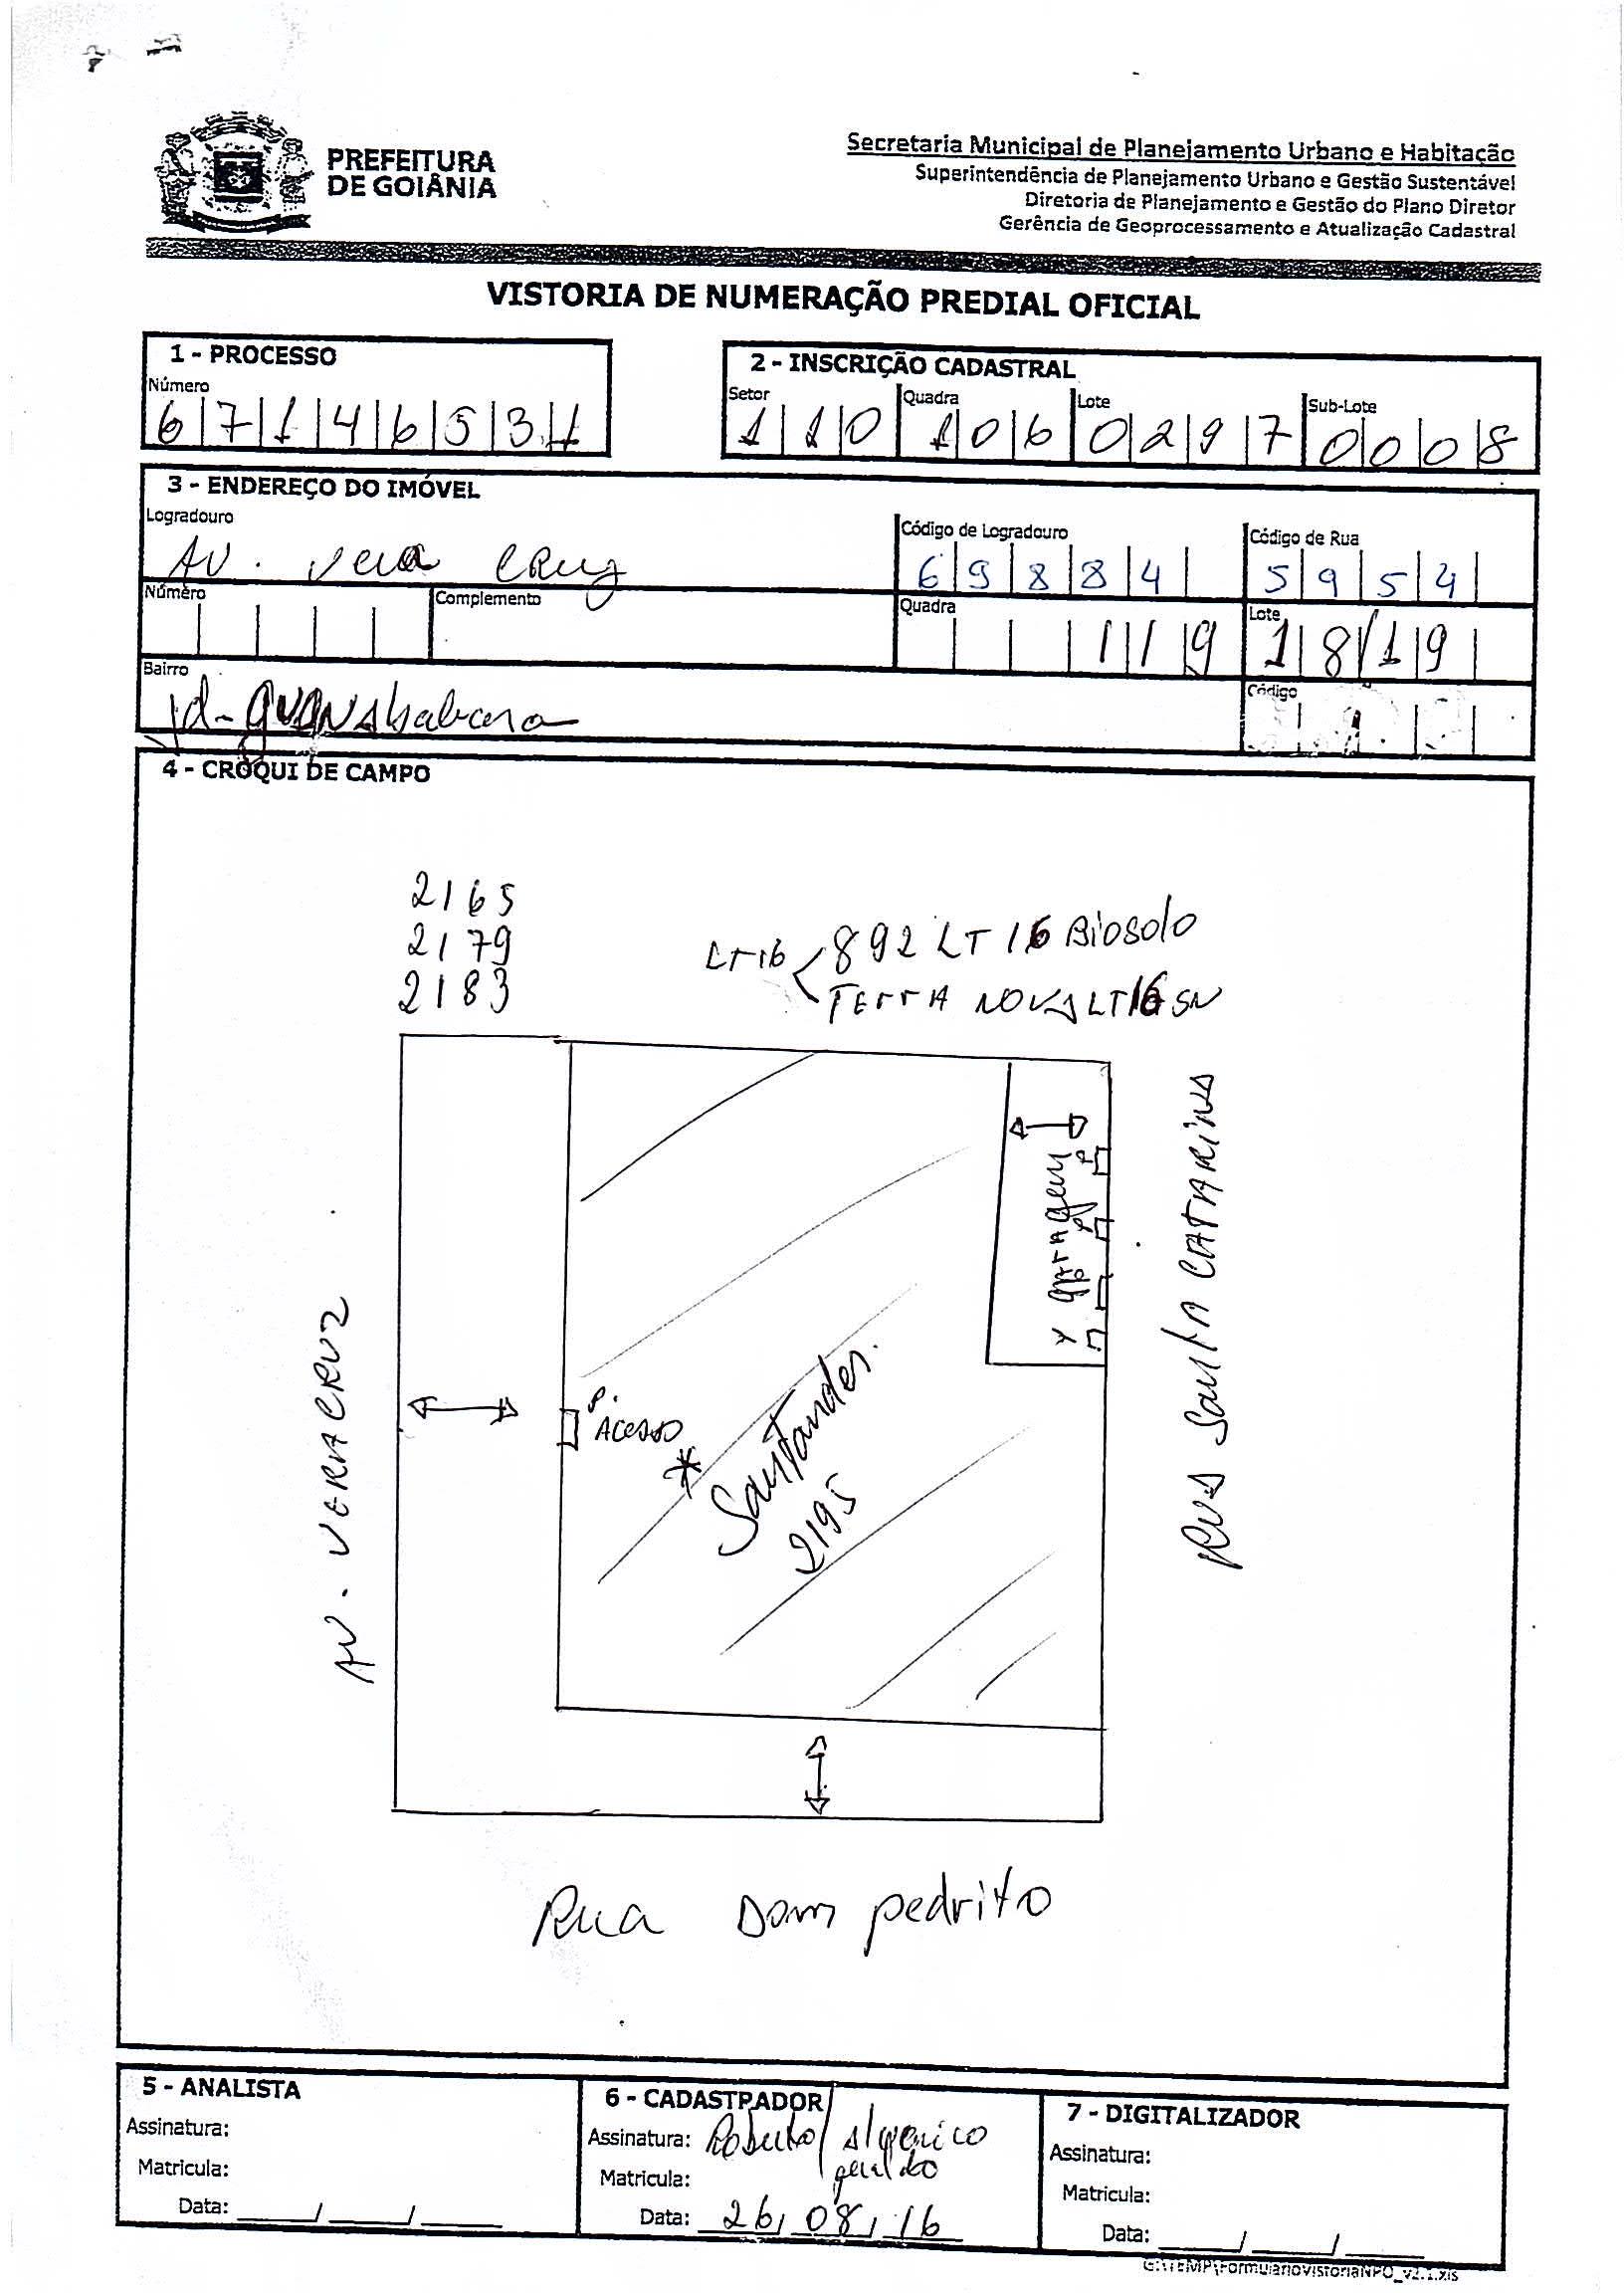 PREFEITURA
DE GOIÂNIA
Secretaria Municipal de Planejamento Urbano e Habitação
Superintendência de Planejamento Urbano e Gestão Sustentável
Diretoria de Planejamento e Gestão do Plano Diretor
Gerência de Geoprocessamento e Atualização Cadastral
VISTORIA DE NUMERAÇÃO PREDIAL OFICIAL
1 - PROCESSO
Número
6 7 1 4 6 5 3 1
2 - INSCRIÇÃO CADASTRAL
Setor Quadra Lote Sub-Lote
1 1 0 1 0 6 0 2 9 7 0 0 0 8
3 - ENDEREÇO DO IMÓVEL
Logradouro Código de Logradouro Código de Rua
AV. Vera Cruz 6 9 8 8 4 5 9 5 4
Número Complemento Quadra Lote
119 18/19
Bairro Código
Jd-
4 - CROQUI DE CAMPO
2165
2179
2183
LT16 892 LT 16 BIOSOLO
TERRA NOVA LT16 SN
garagem
RUA Santa CATARINA
AV. VERA CRUZ
P.
ACESSO
* Santander.
2195
Rua Dom pedrito
5 - ANALISTA
Assinatura:
Matricula:
Data: ____/____/____
6 - CADASTRADOR
Assinatura: Roberto / Algenico
geraldo
Matricula:
Data: 26/08/16
7 - DIGITALIZADOR
Assinatura:
Matricula:
Data: ____/____/____
G:\TEMP\FormularioVistoriaNPO_v2.1.xls